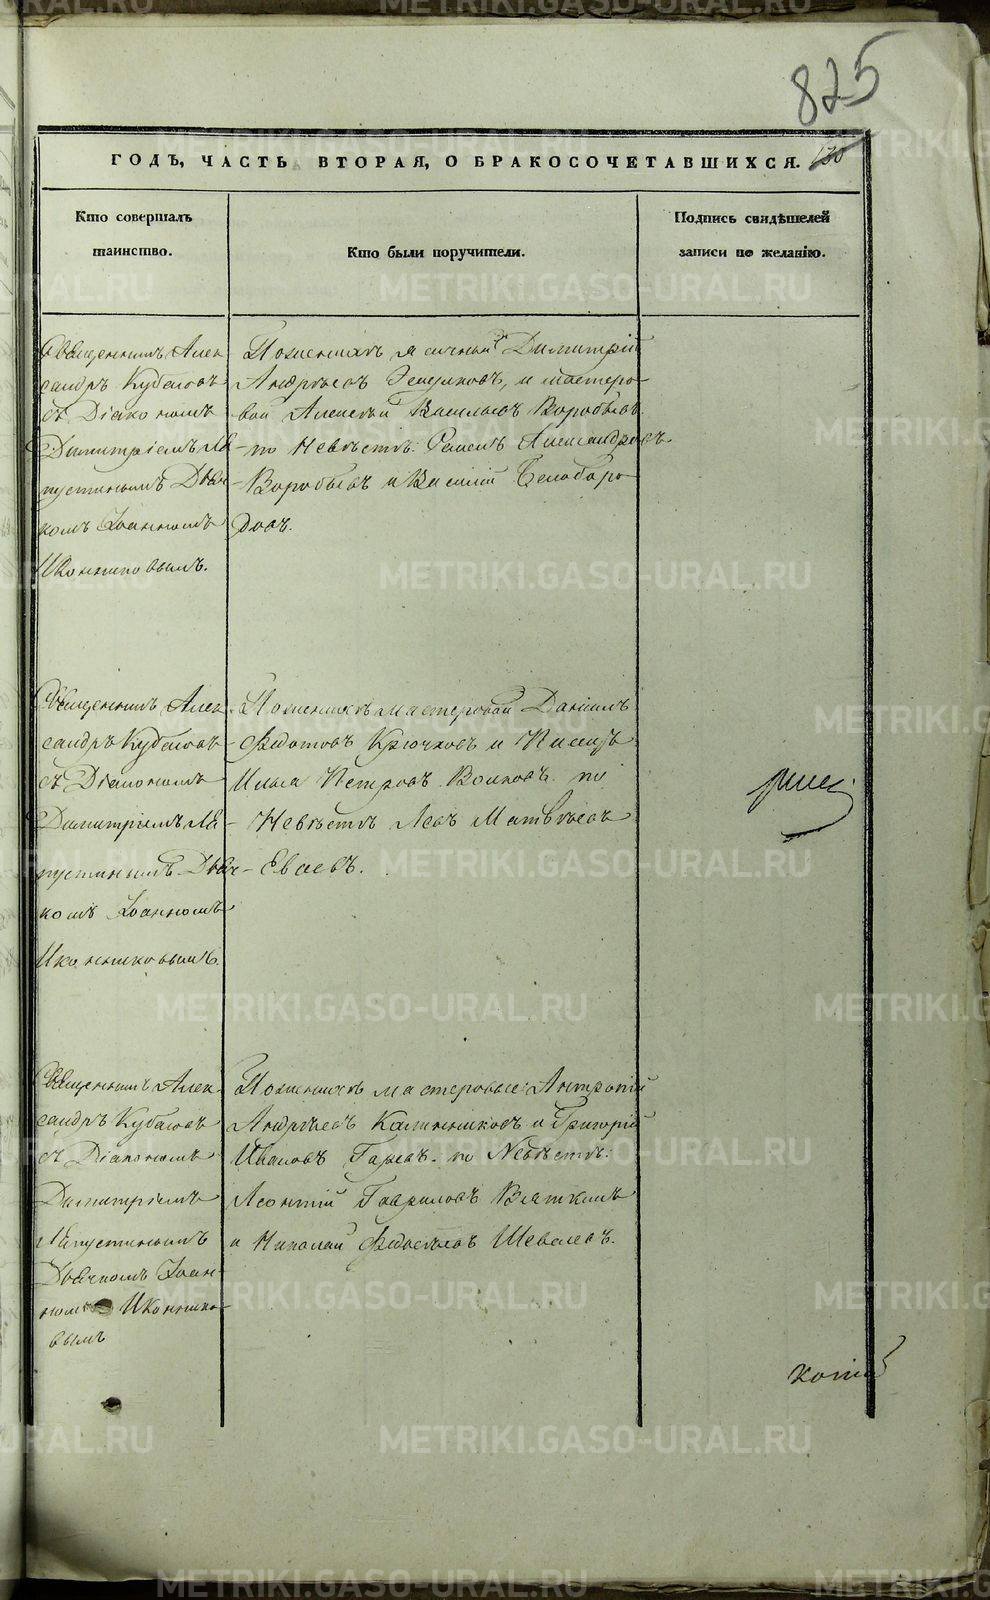 825
ГОДЪ, ЧАСТЬ ВТОРАЯ, О БРАКОСОЧЕТАВШИХСЯ.
130
Кто совершалъ
таинство.
Кто были поручители.
Подпись свидѣтелей
записи по желанію.
Священникъ Алек
сандръ Кубасовъ
съ Діакономъ
Димитріемъ Ля
пустинымъ Дьяч
комъ Іоанномъ
Иконниковымъ.
По женихѣ Димитрій
Андрѣевъ и мастеро
вой Алексѣй Васильевъ Воробьевъ.
по Невѣстѣ: Александровъ
Воробьевъ и Василій Белоборо
довъ.
Священникъ Алек
сандръ Кубасовъ
съ Діакономъ
Димитріемъ Ля
пустинымъ Дьяч
комъ Іоанномъ
Иконниковымъ.
По женихѣ мастеровой Даніилъ
Федотовъ Крючковъ и Писецъ
Илья Петровъ Волковъ. по
Невѣстѣ Левъ Матвѣевъ
Еваевъ.
Священникъ Алек
сандръ Кубасовъ
съ Діакономъ
Димитріемъ
Ляпустинымъ
Дьячкомъ Іоан
номъ Иконнико
вымъ
По женихѣ мастеровые: Антроній
Андрѣевъ Калинниковъ и Григорій
Ивановъ Гаревъ. по Невѣстѣ:
Леонтій Гавриловъ Вяткинъ
и Николай Федосѣевъ Шевалевъ.
копію
METRIKI.GASO-URAL.RU